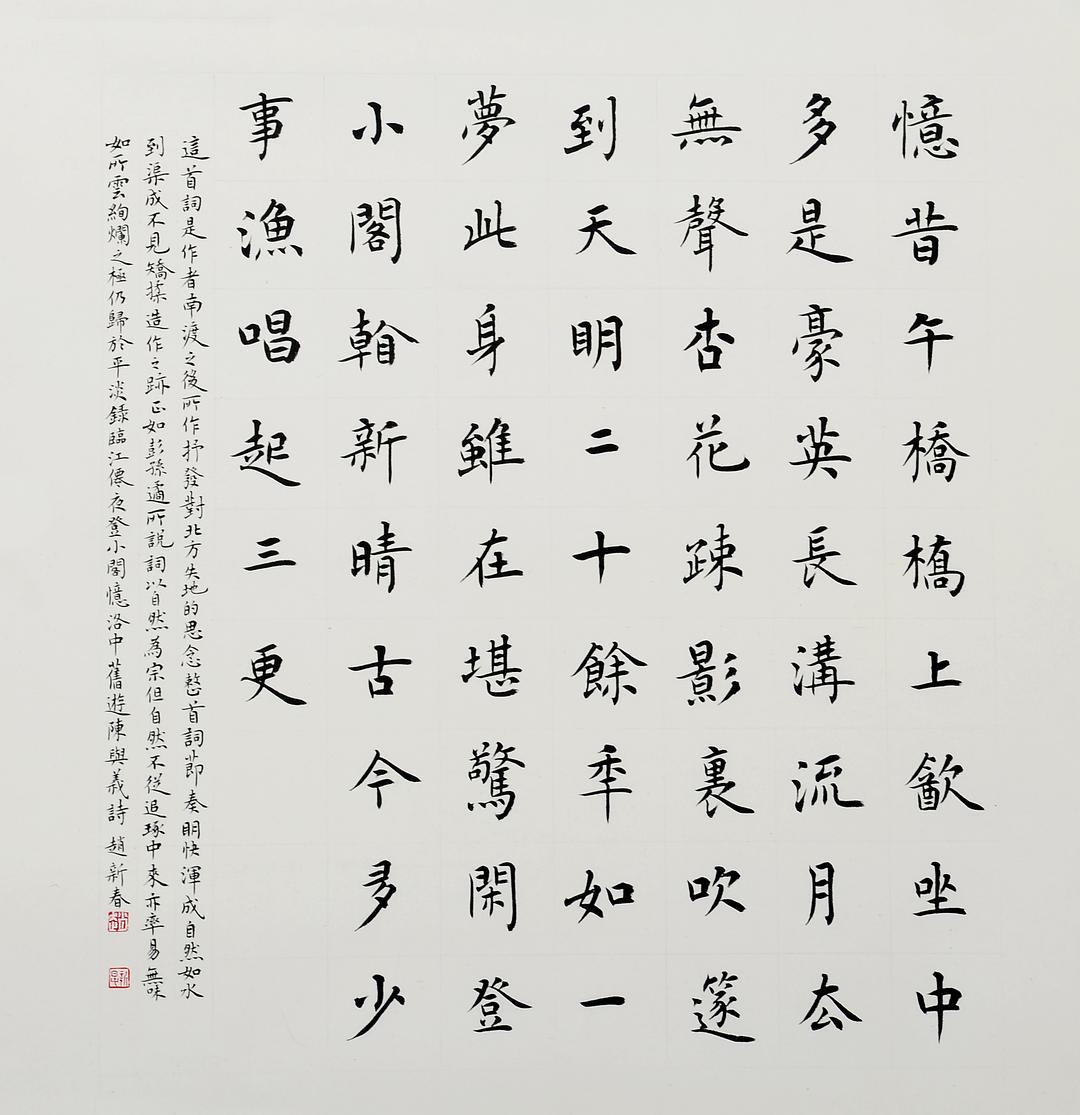 憶昔午橋橋上㱃坐中
多是豪英長溝流月厺
無聲杏花疎影裏吹篴
到天眀二十餘秊如一
夢此身雖在堪驚閑登
小閣看新晴古今多少
事漁唱起三更
這首詞是作者南渡之後所作抒發對北方失地的思念整首詞節奏眀快渾成自然如水
到渠成不見矯揉造作之跡正如彭孫遹所說詞以自然為宗但自然不從追琢中來亦率易無味
如所雲絢爛之極仍歸於平淡錄臨江僊夜登小閣憶洛中舊遊陳與義詩 趙新春